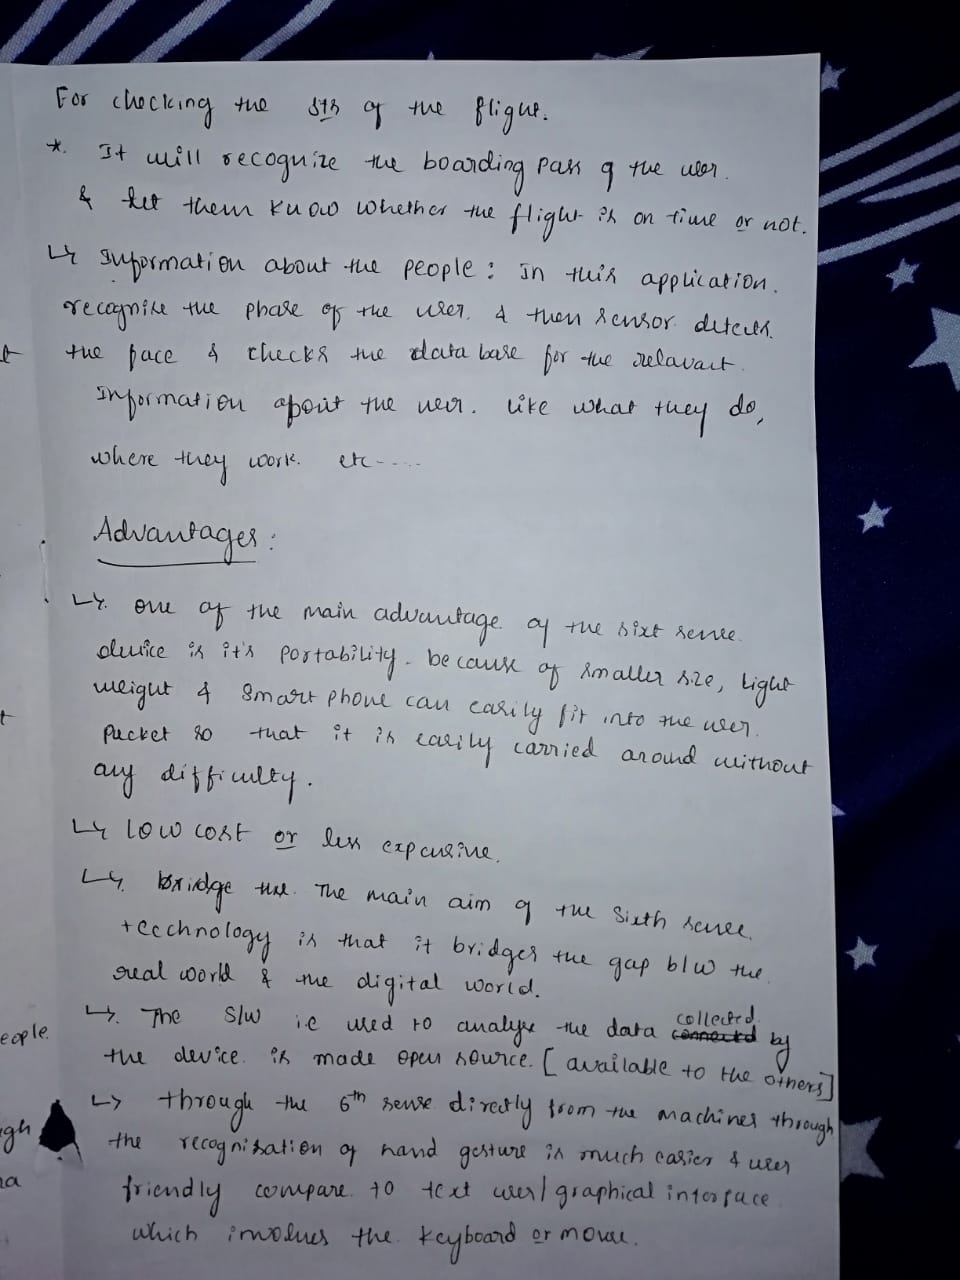 For checking the sts of the flight.
* It will recognize the boarding pass of the user.
& let them know whether the flight is on time or not.
↳ Information about the people: In this application.
recognise the phase of the user. & then sensor detects.
the face & checks the data base for the relavant.
Information about the user. like what they do,
where they work. etc-....
Advantages:
↳. one of the main advantage of the sixt sense
device is it's portability. because of smaller size, light
weight & smart phone can easily fit into the user.
packet so that it is easily carried around without
any difficulty.
↳ low cost or less expensive.
↳. bridge the. The main aim of the sixth sense.
technology is that it bridges the gap b/w the
real world & the digital world.
↳. The S/w i.e used to analyse the data collected by
the device is made open source. [available to the others]
↳ through the 6th sense directly from the machines through
the recognisation of hand gesture is much easier & user
friendly compare to text user/graphical interface
which involves the keyboard or mouse.
eople.
gh
na